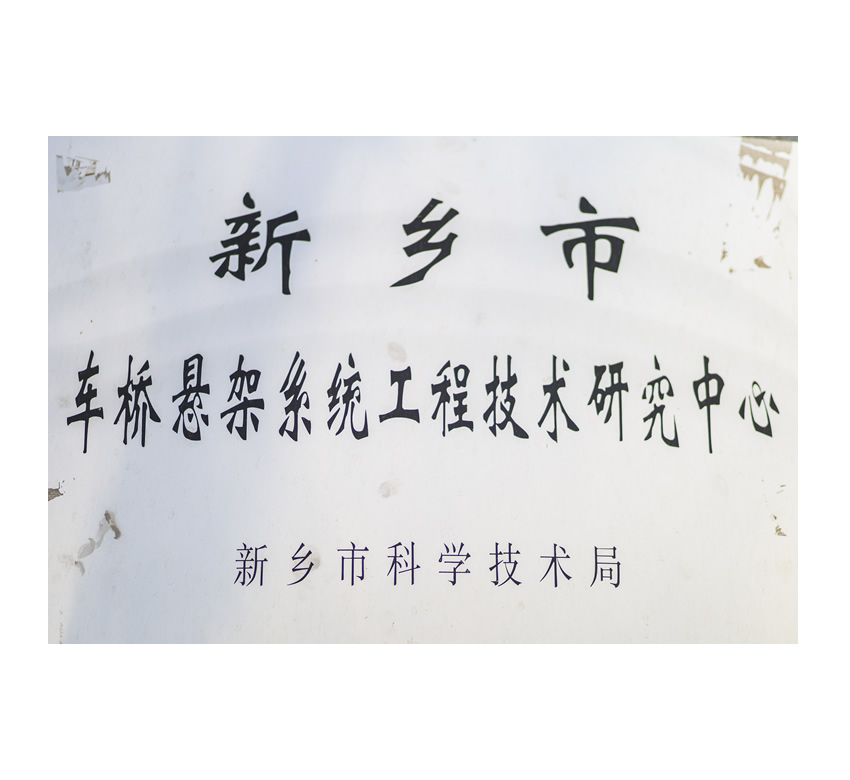 新乡市
车桥悬架系统工程技术研究中心
新乡市科学技术局